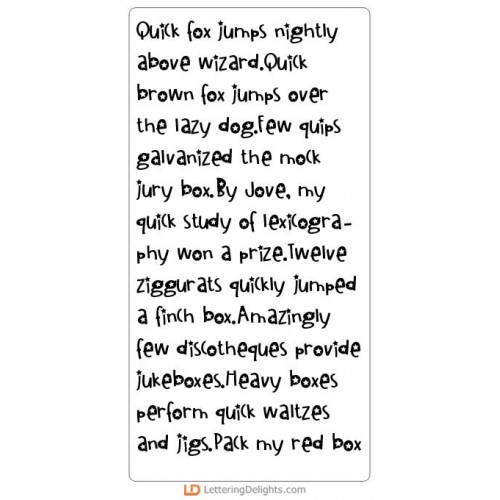 Quick fox jumps nightly
above wizard.Quick
brown fox jumps over
the lazy dog.Few quips
galvanized the mock
jury box.By Jove, my
quick study of lexicogra-
phy won a prize.Twelve
ziggurats quickly jumped
a finch box.Amazingly
few discotheques provide
jukeboxes.Heavy boxes
perform quick waltzes
and jigs.Pack my red box
LD LetteringDelights.com